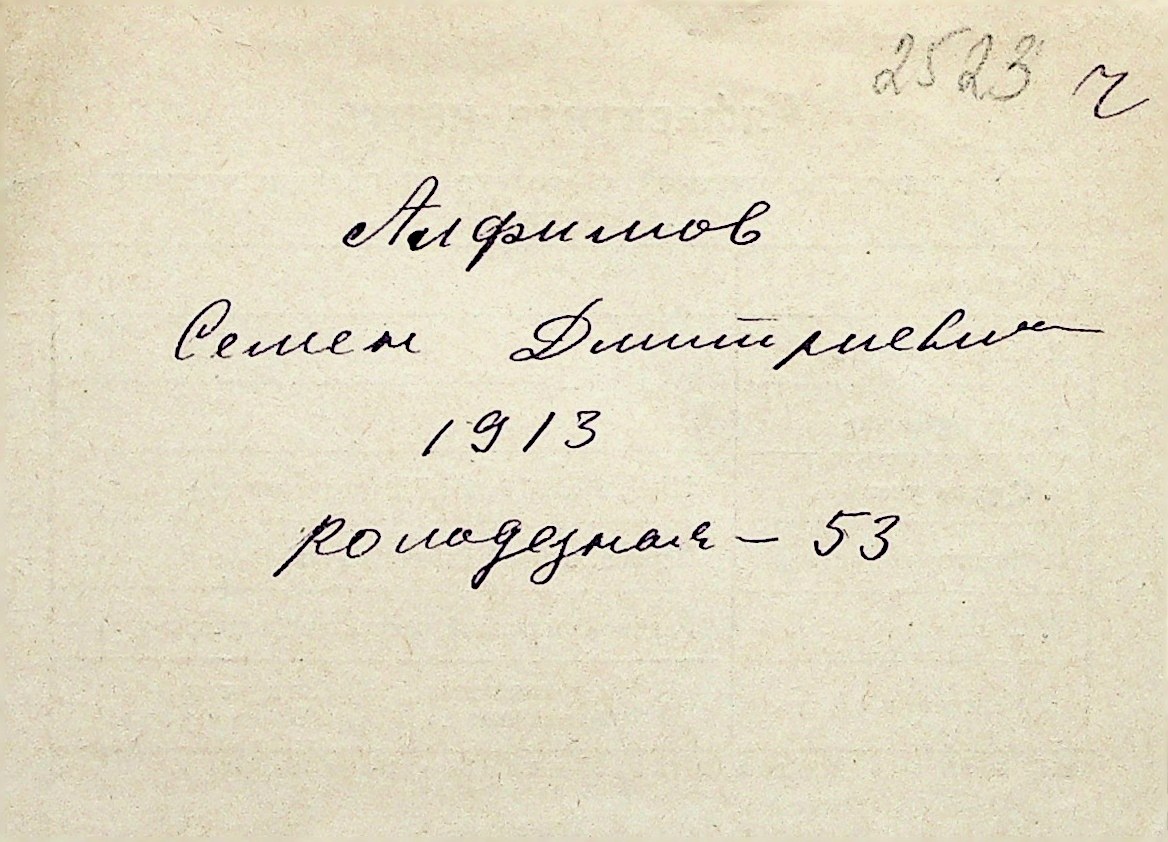 2523 ч
Алфимов
Семен Дмитриевич
1913
Колодезная - 53